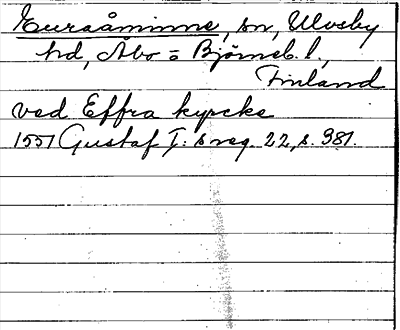 Euraåminne, sn, Ulvsby
hd, Åbo = Björneb. l.,
Finland
ved Effra kyrcke
1551 Gustaf I:s reg. 22, s. 381.